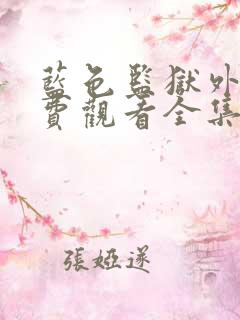 藍色監獄外
費觀看全集
張婭遂